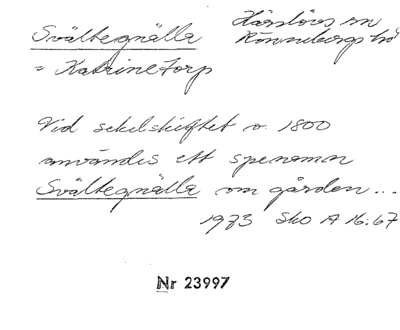 Svältegnälla
Härslövs sn
Rönnebergs hd
= Katrinetorp
Vid sekelskiftet o. 1800
användes ett spenamn
Svältegnälla om gården...
1973 Sko A 16:67
Nr 23997